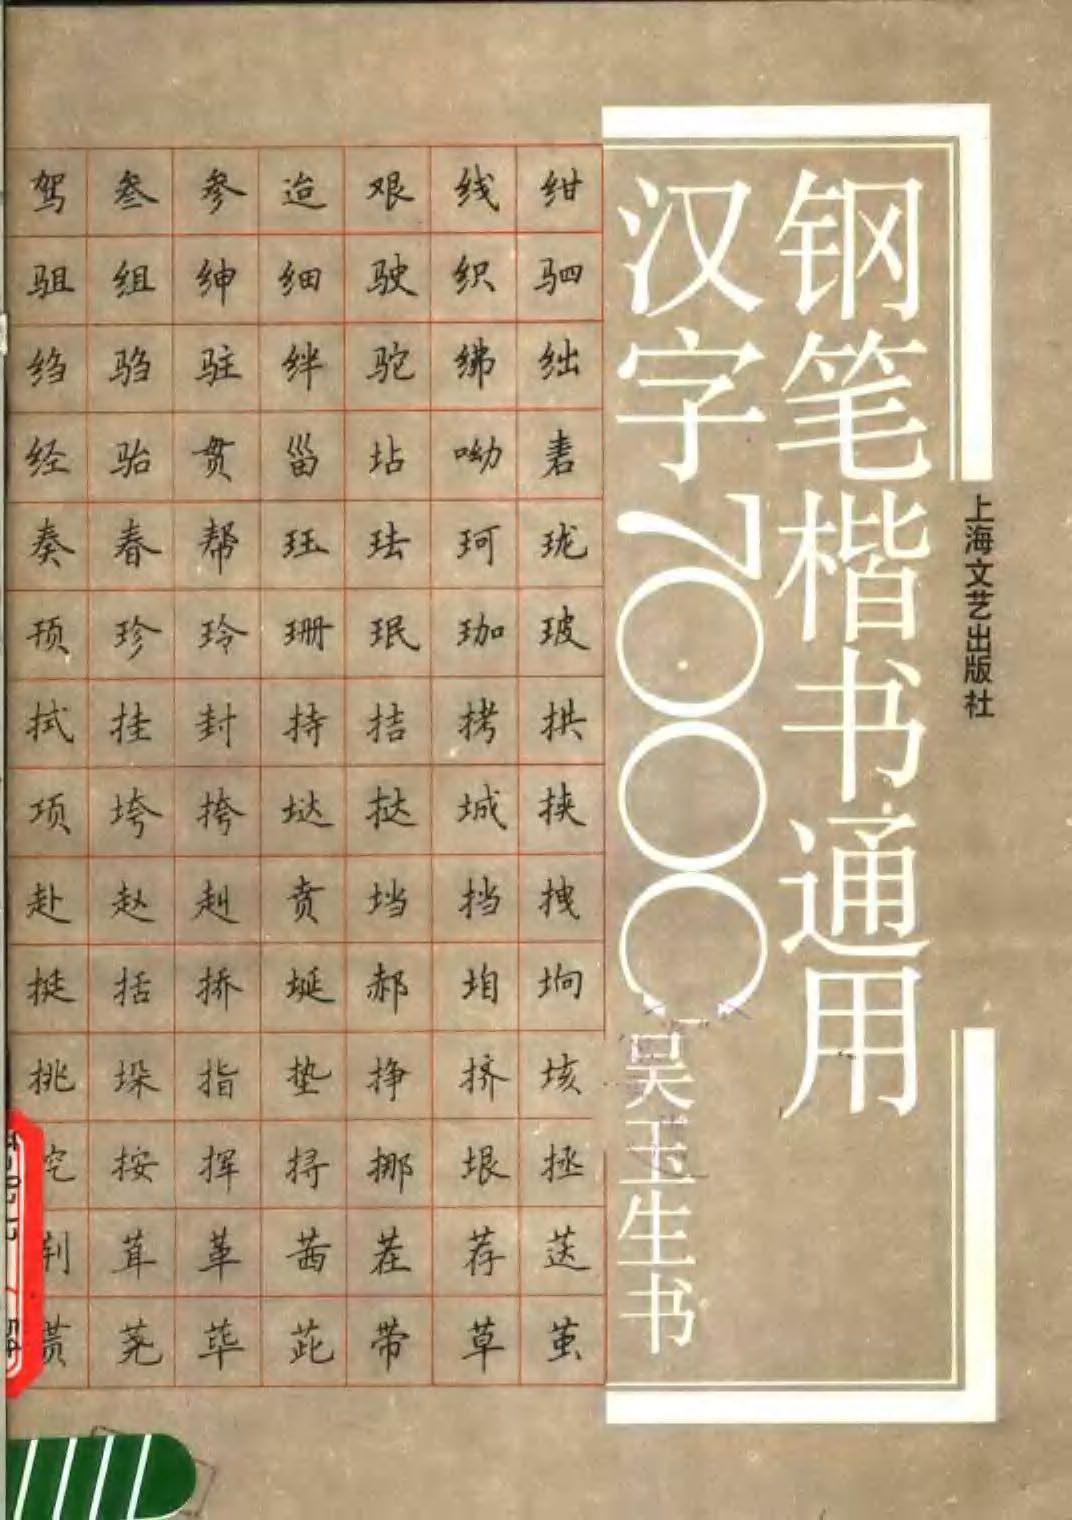 上海文艺出版社
钢笔楷书通用
汉字7000
吴玉生书
驾 叁 参 迨 艰 线 绀
驵 组 绅 细 驶 织 驷
绉 驺 驻 绊 驼 绋 绌
经 骀 贯 甾 坫 呦 砉
奏 春 帮 珏 珐 珂 珑
顸 珍 玲 珊 珉 珈 玻
拭 挂 封 持 拮 拷 拱
项 垮 挎 垯 挞 城 挟
赴 赵 赳 贲 垱 挡 拽
挺 括 挢 埏 郝 垍 垧
挑 垛 指 垫 挣 挤 垓
挖 按 挥 挦 挪 垠 拯
荆 茸 革 茜 茬 荐 荙
贳 荛 荜 茈 带 草 茧